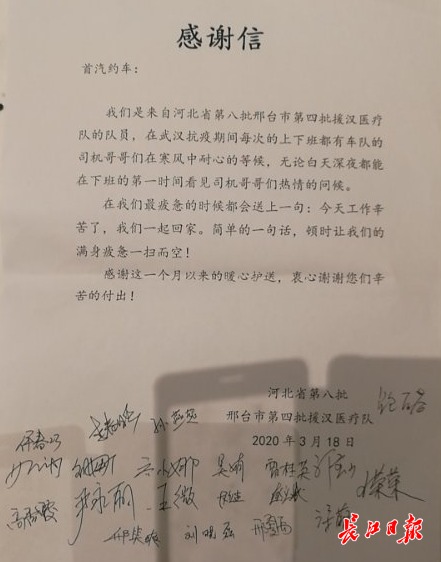 感谢信
首汽约车：
我们是来自河北省第八批邢台市第四批援汉医疗
队的队员，在武汉抗疫期间每次的上下班都有车队的
司机哥哥们在寒风中耐心的等候，无论白天深夜都能
在下班的第一时间看见司机哥哥们热情的问候。
在我们最疲惫的时候都会送上一句：今天工作辛
苦了，我们一起回家。简单的一句话，顿时让我们的
满身疲惫一扫而空！
感谢这一个月以来的暖心护送，衷心谢谢您们辛
苦的付出！
河北省第八批
邢台市第四批援汉医疗队
2020 年 3 月 18 日
长江日报